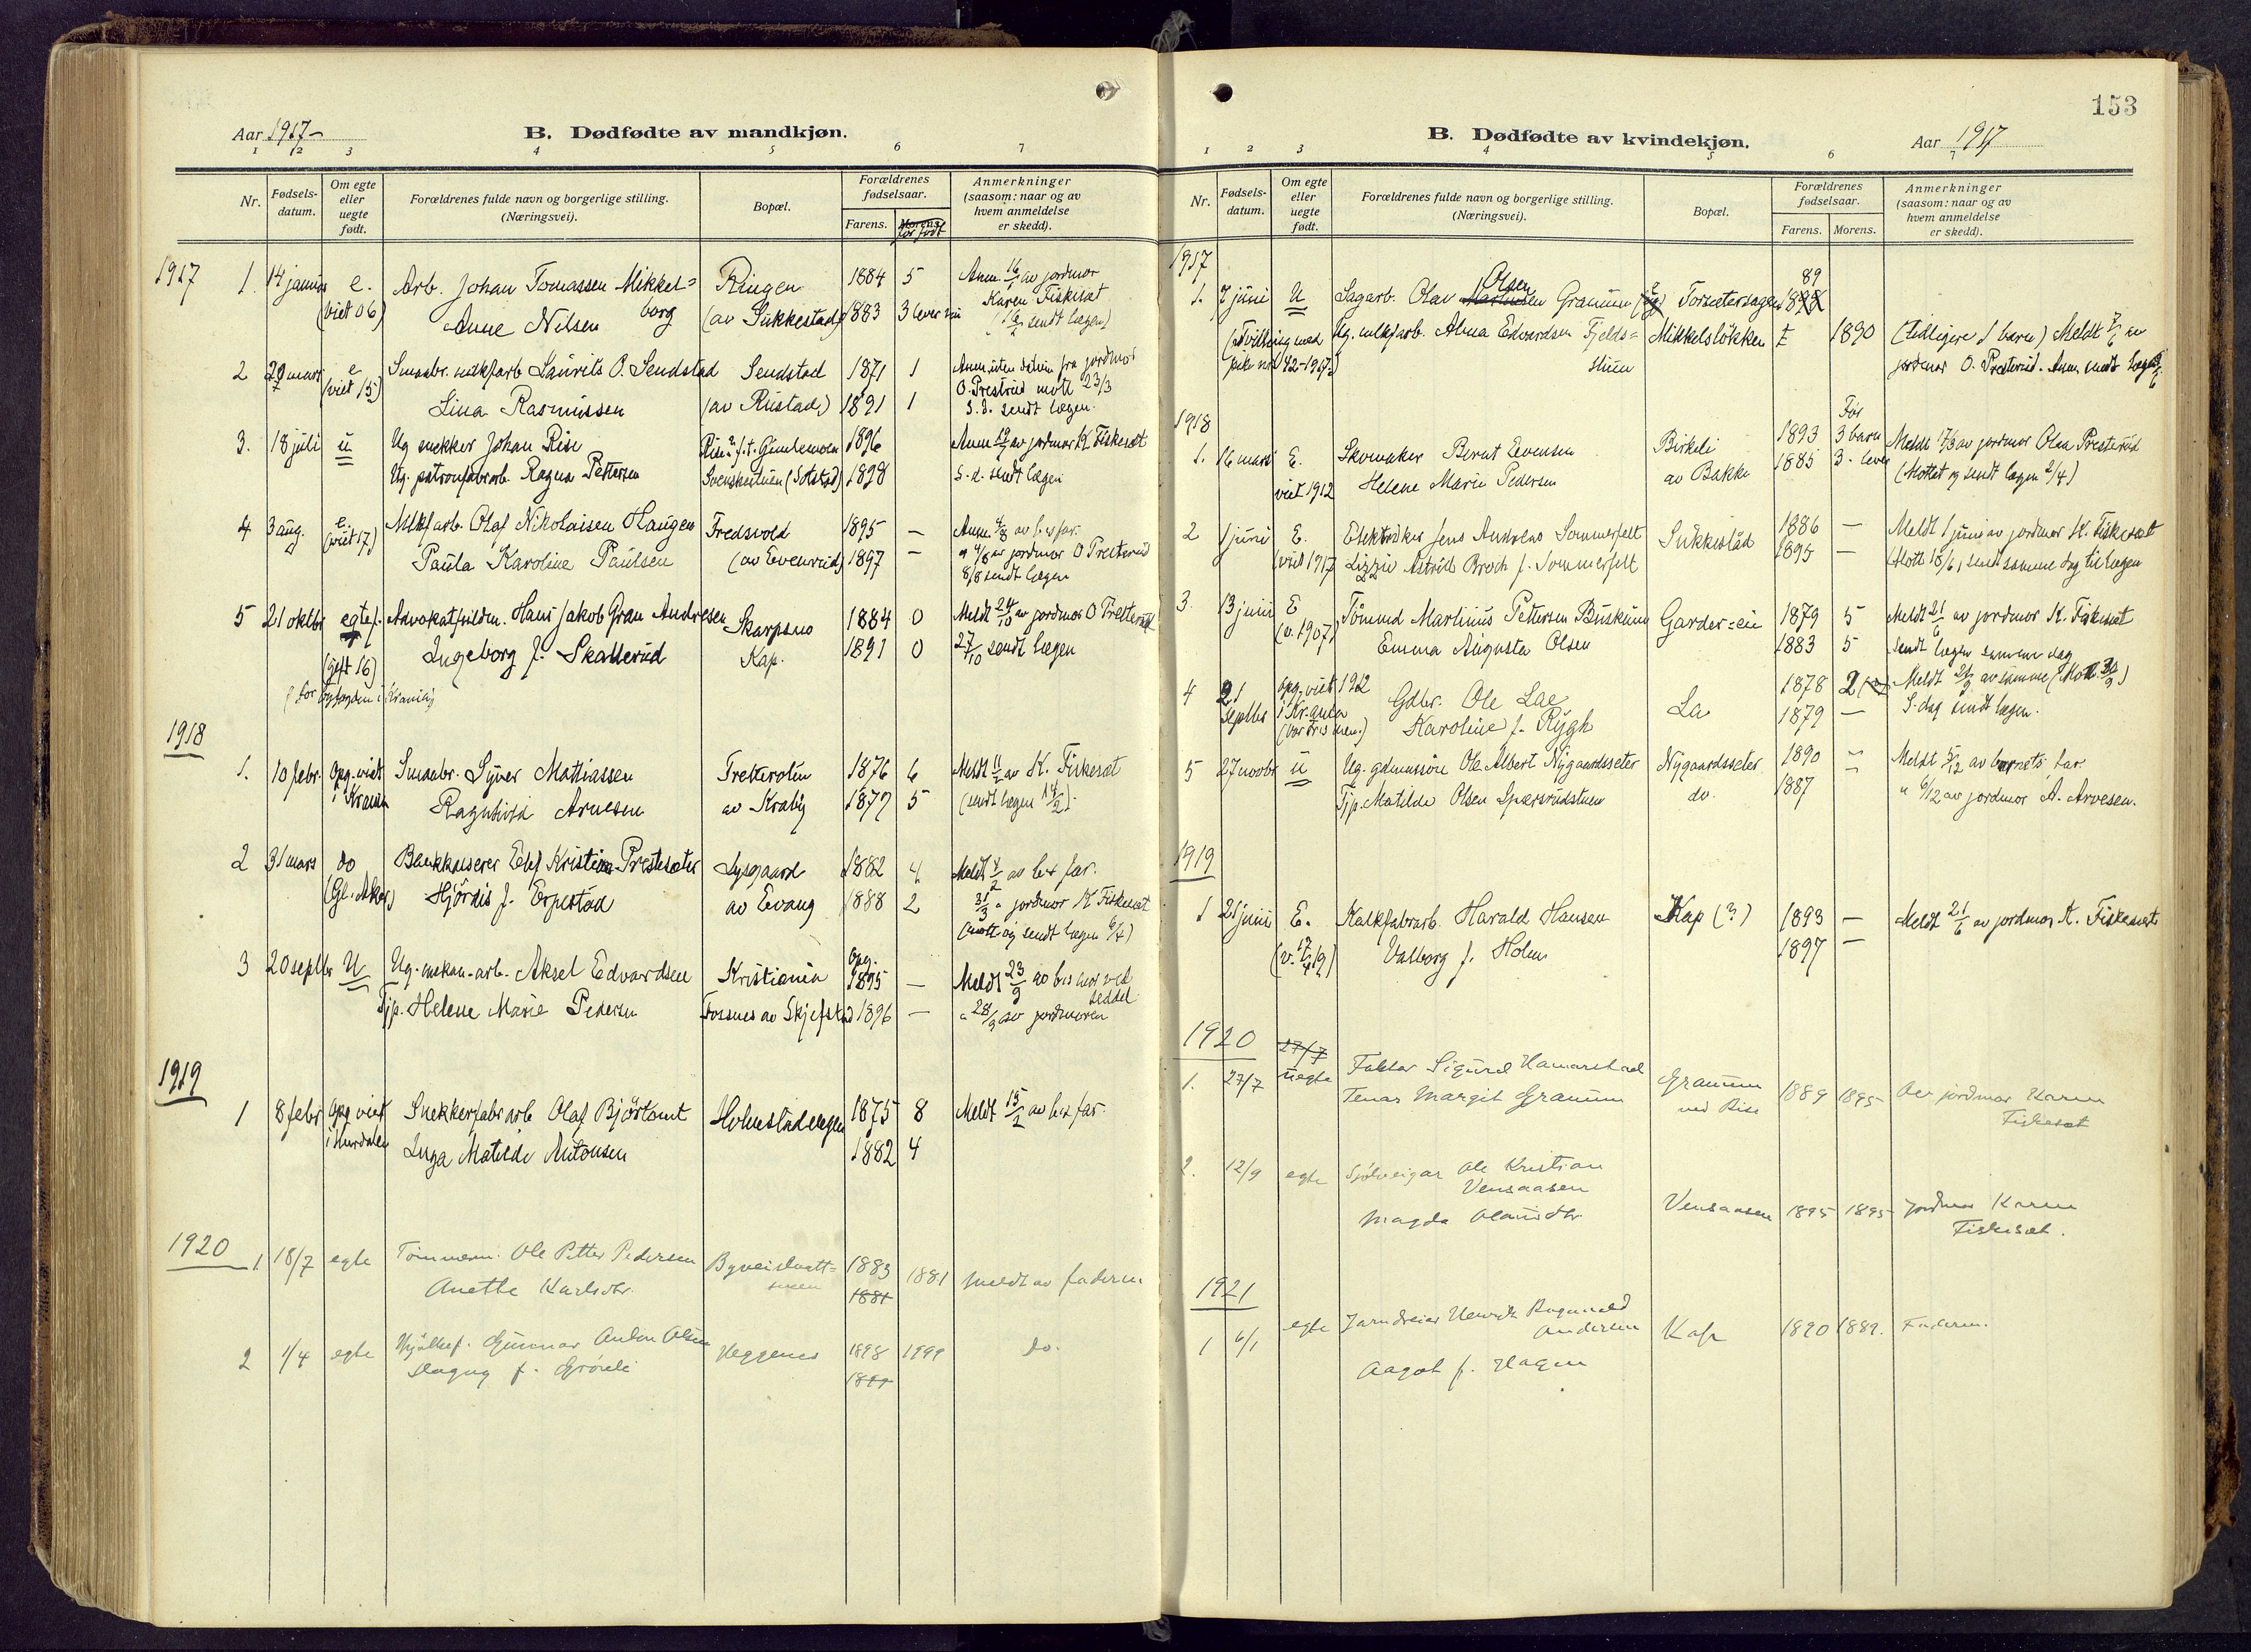 Aar 1917-
B. Dødfødte av mandkjøn.
1 2 3 4 5 6 7
Nr.
Fødsels-
datum.
Om egte
eller
uegte
født.
Forældrenes fulde navn og borgerlige stilling.
(Næringsvei).
Bopæl.
Forældrenes
fødselsaar.
Farens. Morens.
før født
Anmerkninger
(saasom: naar og av
hvem anmeldelse
er skedd).
1917 1. 14 januar e. Arb. Johan Tomassen Mikkel= Ringen 1884 5 Anm. 16/1 av jordmor
(viet 06) Anne Nilsen borg (av Sukkestad) 1883 3 lever Karen Fiskesæt
sendt lægen)
2 29 mars e Smaabr. melkfarb Laurits O. Sendstad Sendstad 1871 1 Anm. uten datum fra jordmor
(viet 15) Lina Rasmussen (av Rustad) 1891 1 O. Presterud mott 23/3
S. d. sendt lægen.
3. 18 juli u Ug snekker Johan Rise 1896 Anm 19/7 av jordmor K. Fiskesæt
Ug. patronfabrarb. Ragna Pettersen 1898 S. d. sendt lægen
4 3 aug. e. Mlkf arb. Olaf Nikolaisen Haugen Fredsvold 1895 — Anm. 4/8 av b+s far.
(viet 17) Paula Karoline Paulsen (av Evenrud) 1897 — og 4/8 av jordmor O Presterud
8/8 sendt lægen
5 21 oktbr egtef. Advokatfuldm. Hans Jakob Gran Andresen Skarpsno 1884 0 Meldt 24/10 av jordmor O Presterud
(gift 16) Ingeborg f. Skatterud Kap. 1891 0 27/10 sendt lægen
1918
1. 10 febr. opg. viet Smaabr. Syver Mathiassen Tretteroten 1876 6 Meldt 11/2 av K. Fiskesæt
i Krania Ragnhild Arnesen av Kraby 1877 5 (sendt lægen 14/2).
2 31 mars do Bankkasserer Edef Kristian Prestesæter Lysgaard 1882 4 Meldt 4/2 av b+s far.
(Gl. Aker) Hjördis f. Erpestad av Evang 1888 2 31/3 " jordmor K Fiskesæt
(mott og sendt lægen 6/4)
3 20 septbr U Ug. mekan. arb. Aksel Edvardsen Kristiania opg. 1895 — Meldt 23/9 av b+s mor ved
seddel
Tjp. Helene Marie Pedersen Fossnes av Skjefstad 1896 — " 28/9 av jordmoren
1919
1 8 febr opg viet Snekkerfabr arb Olaf Björtomt Holmstadengen 1875 8 Meldt 15/2 av b+s far.
i Hurdalen Inga Matilde Antonsen 1882 4
1920 1. 18/7 egte Tömmerm. Ole Petter Pedersen 1883 1881 meldt av faderen
Anette Karlsdtr. 1881
2 1/4 egte Gunnar Anton Olsen Heggenes 1898 1999 do.
Dagny f. Grönli 1899
153
B. Dødfødte av kvindekjøn.
Aar 1917
1 2 3 4 5 6 7
Nr.
Fødsels-
datum.
Om egte
eller
uegte
født.
Forældrenes fulde navn og borgerlige stilling.
(Næringsvei).
Bopæl.
Forældrenes
fødselsaar.
Farens. Morens.
Anmerkninger
(saasom: naar og av
hvem anmeldelse
er skedd).
1917
Olsen 89
1. 7 juni U Sagarb. Olav Granum 1898
(Tvilling med Ug. mlkfarb. Alma Edvardsen Fjelds= Mikkelsløkken 1890 (Tidligere 1 barn) Meldt 7/6 av
pik nr 42-1917) stuen jordmor O. Presterud. Anm. sendt lægen
1918
Før
1. 16 mars E. Skomaker Bernt Evensen Birkeli 1893 3 barn Meldt 17/3 av jordmor Olea Presterud
viet 1912 Helene Marie Pedersen av Bakke 1885 3 - lever (Mottat og sendt lægen 2/4)
2 1 juni E. Elektriker Jens Andreas Sommerfelt Sukkestad 1886 — Meldt 1 juni av jordmor K. Fiskesæt
(viet 1917 Lizzie Astrid Broch f. Sommerfelt 1895 — (Mott 18/6, sendt samme dag til lægen
3. 13 juni E Tömmd Martinius Pettersen Buskum Garder=eie 1879 5 Meldt 21/6 av jordmor K. Fiskesæt
(v. 1907) Emma Augusta Olsen 1883 5 Sendt lægen samme dag
4 21 opg. viet 1912 Gdbr. Ole Lae La 1878 2 Meldt 21/9 av samme
septbr i Kr.ania Karoline f. Rygh 1879 — S. dag sendt lægen.
5 27 novbr u Ug. gdmanssön Ole Albert Nygaardsseter Nygaardsseter 1890 — Meldt 5/12 av barnets far.
Tjp. Matilde Olsen do. 1887 — " 6/12 av jordmor A. Arvesen.
1919
1 21 juni E. Kalkfabrarb Harald Hansen Kap (?) 1893 — Meldt 21/6 av jordmor K. Fiskesæt
(v. 17/4 19) Valborg f. Holm 1897 —
1920 27/7
1. 27/7 uegte Faktor Sigurd Hamarstad Granum 1889 1895 Av jordmor Karen
Margit Granum ved Rise Fiskesæt
2. 12/9 egte Sjölveigar Ole Kristian
Vensaasen
Magda Olausdtr. Vensaasen 1895 1895 Jordmor Karen
Fiskesæt.
1921
1 6/1 egte Jarndreier Henrik Ragnvald
Andersen Kap 1890 1889. Faderen.
Aagot f. Hagen